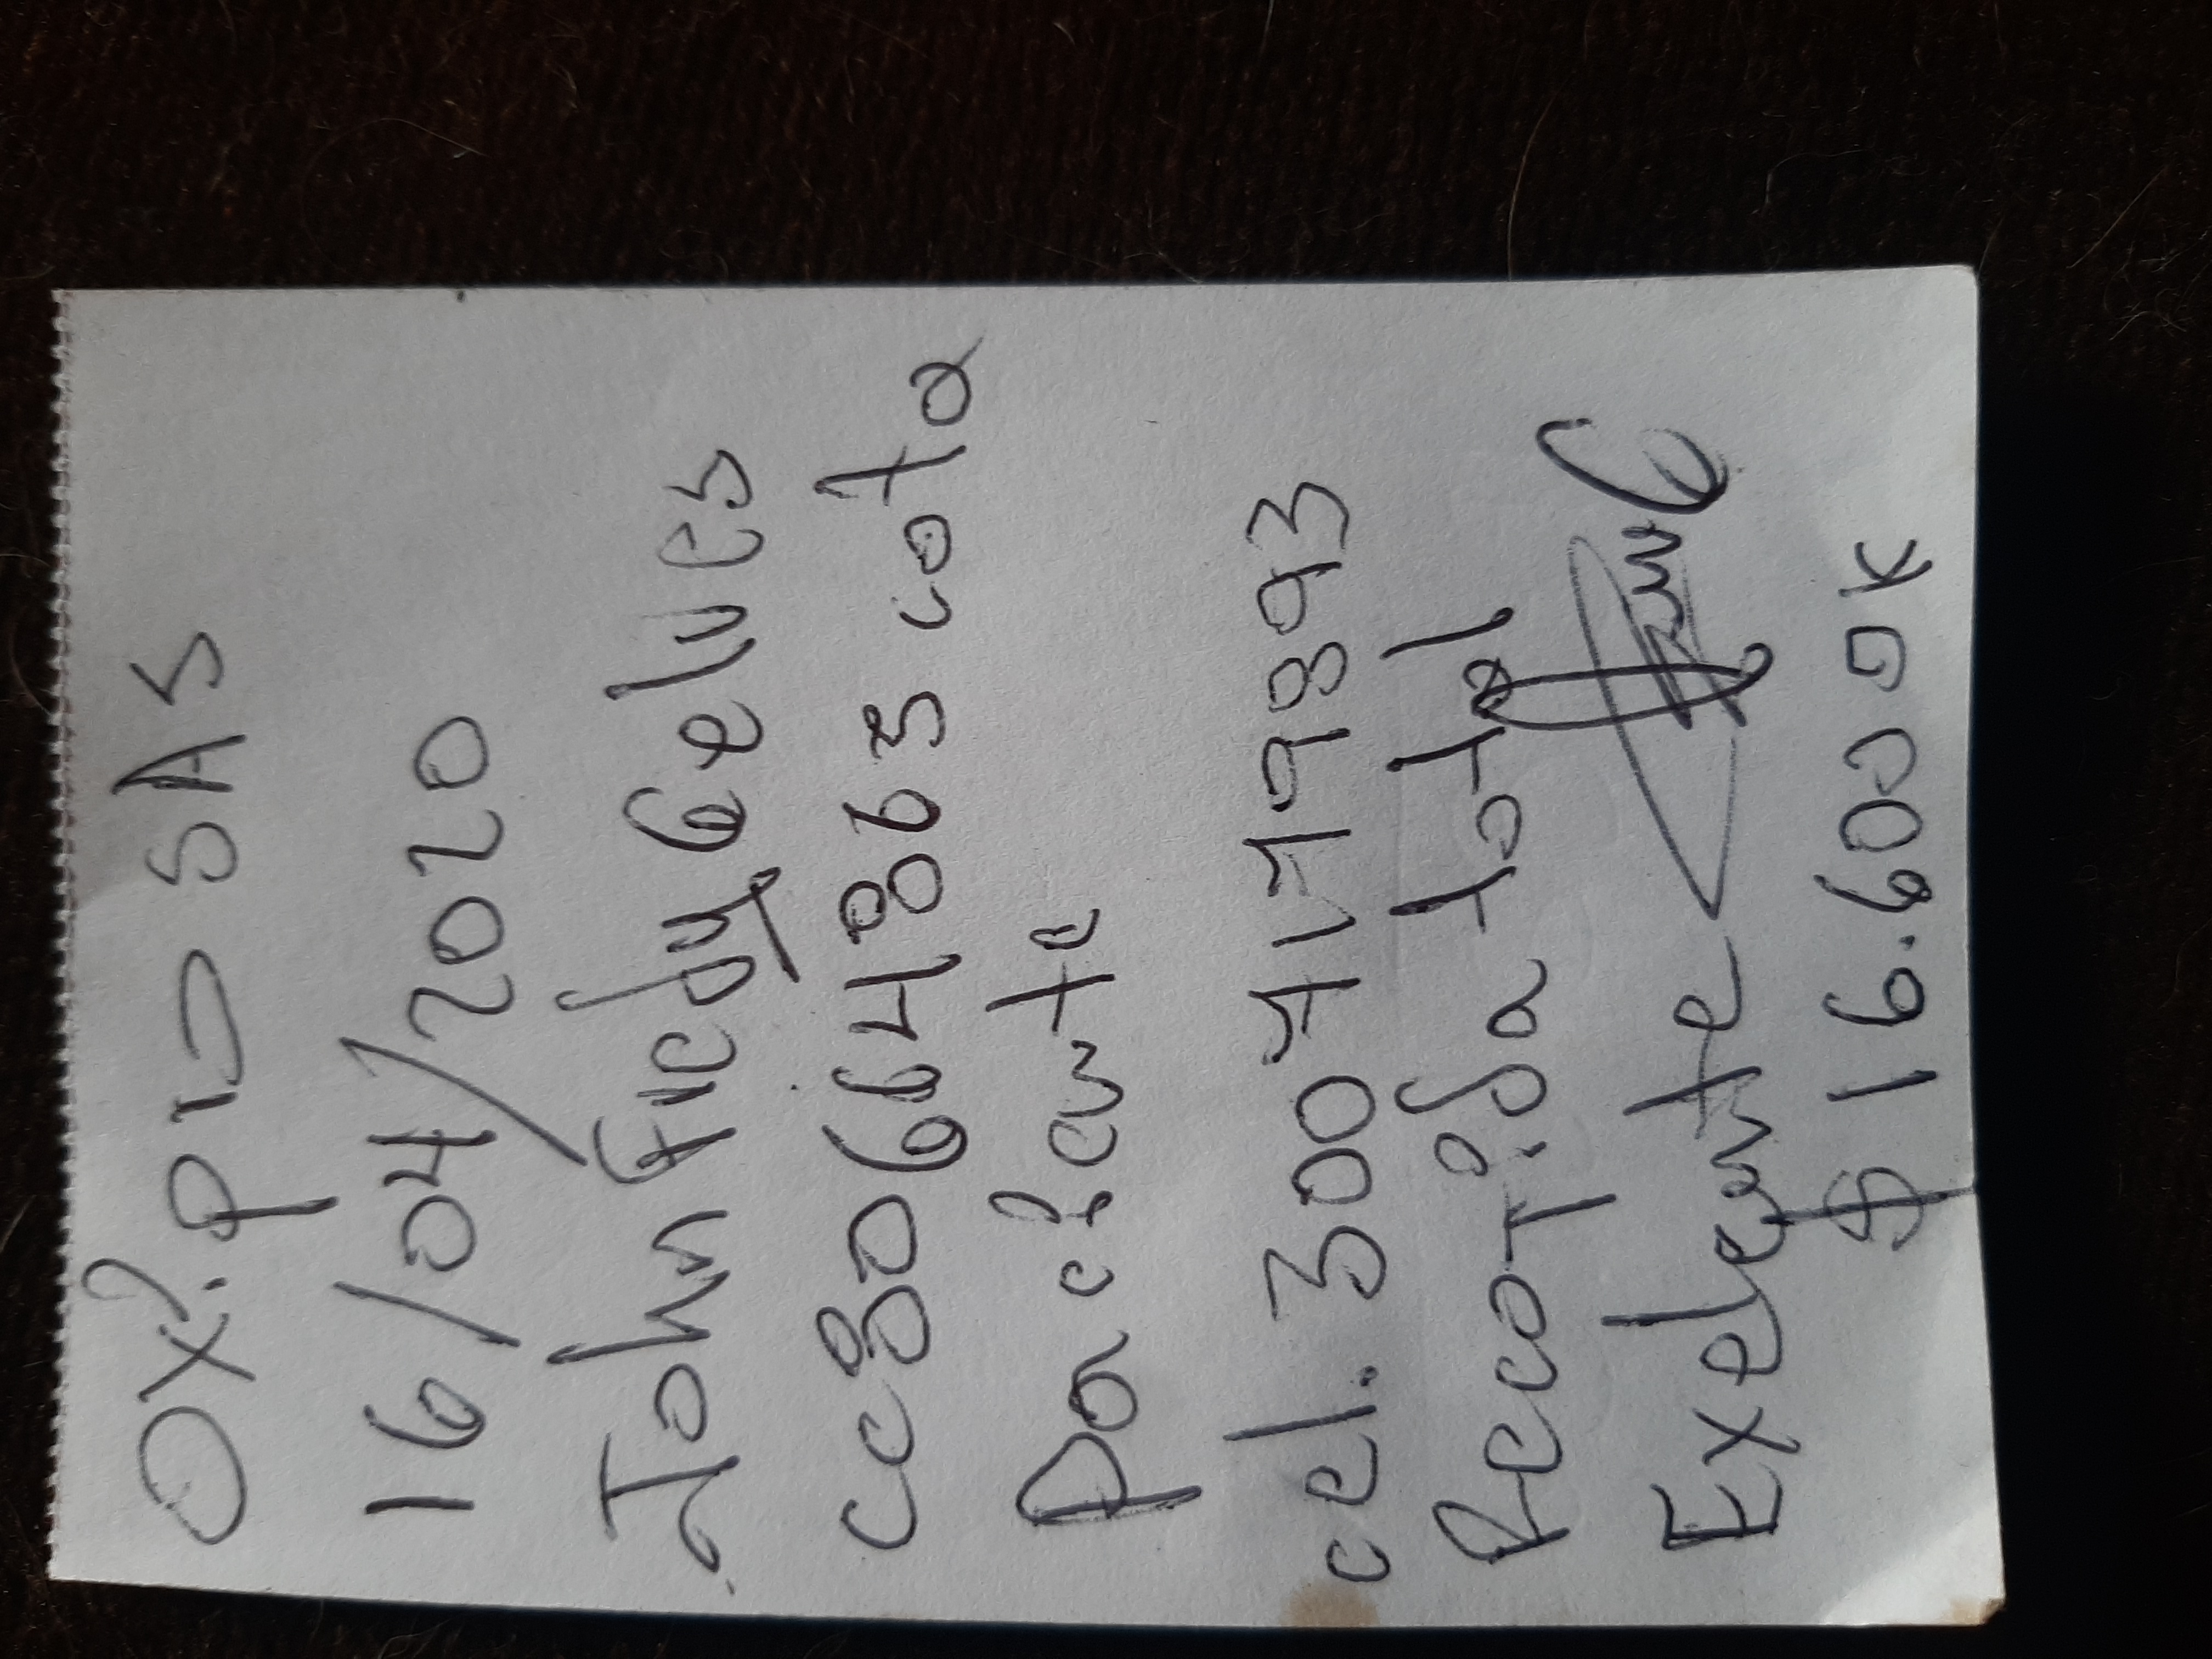 Oxi pro SAS
16/04/2020
John Fredy Gelves
cc 80664863 cota
Paciente
cel. 3004179893
Recotida total
Exelente
$ 16.600 OK